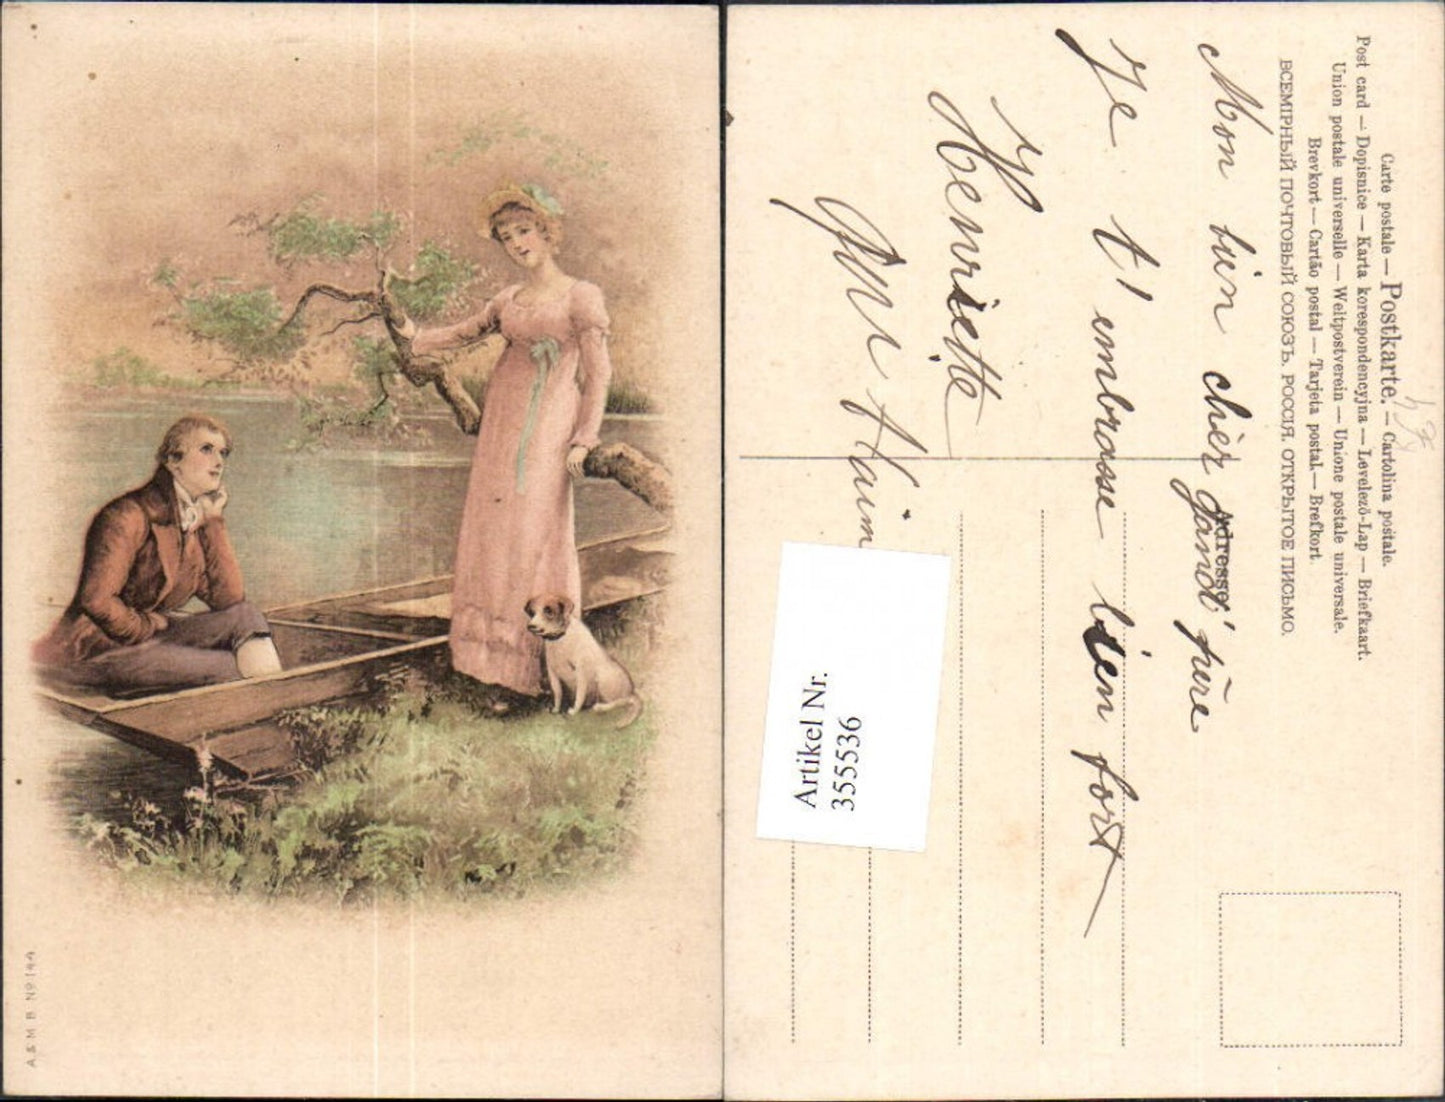 A & M B Nº 144
Carte postale — Postkarte. — Cartolina postale.
Post card — Dopisnice — Karta korespondencyjna — Levelező-Lap — Briefkaart.
Union postale universelle — Weltpostverein — Unione postale universale.
Brevkort — Cartão postal — Tarjeta postal — Brefkort
ВСЕМІРНЫЙ ПОЧТОВЫЙ СОЮЗЪ. РОССІЯ. ОТКРЫТОЕ ПИСЬМО.
Adresse
Mon bien chèr gand' père
Je t'embrasse bien fort
Henriette
Artikel Nr.
3555536